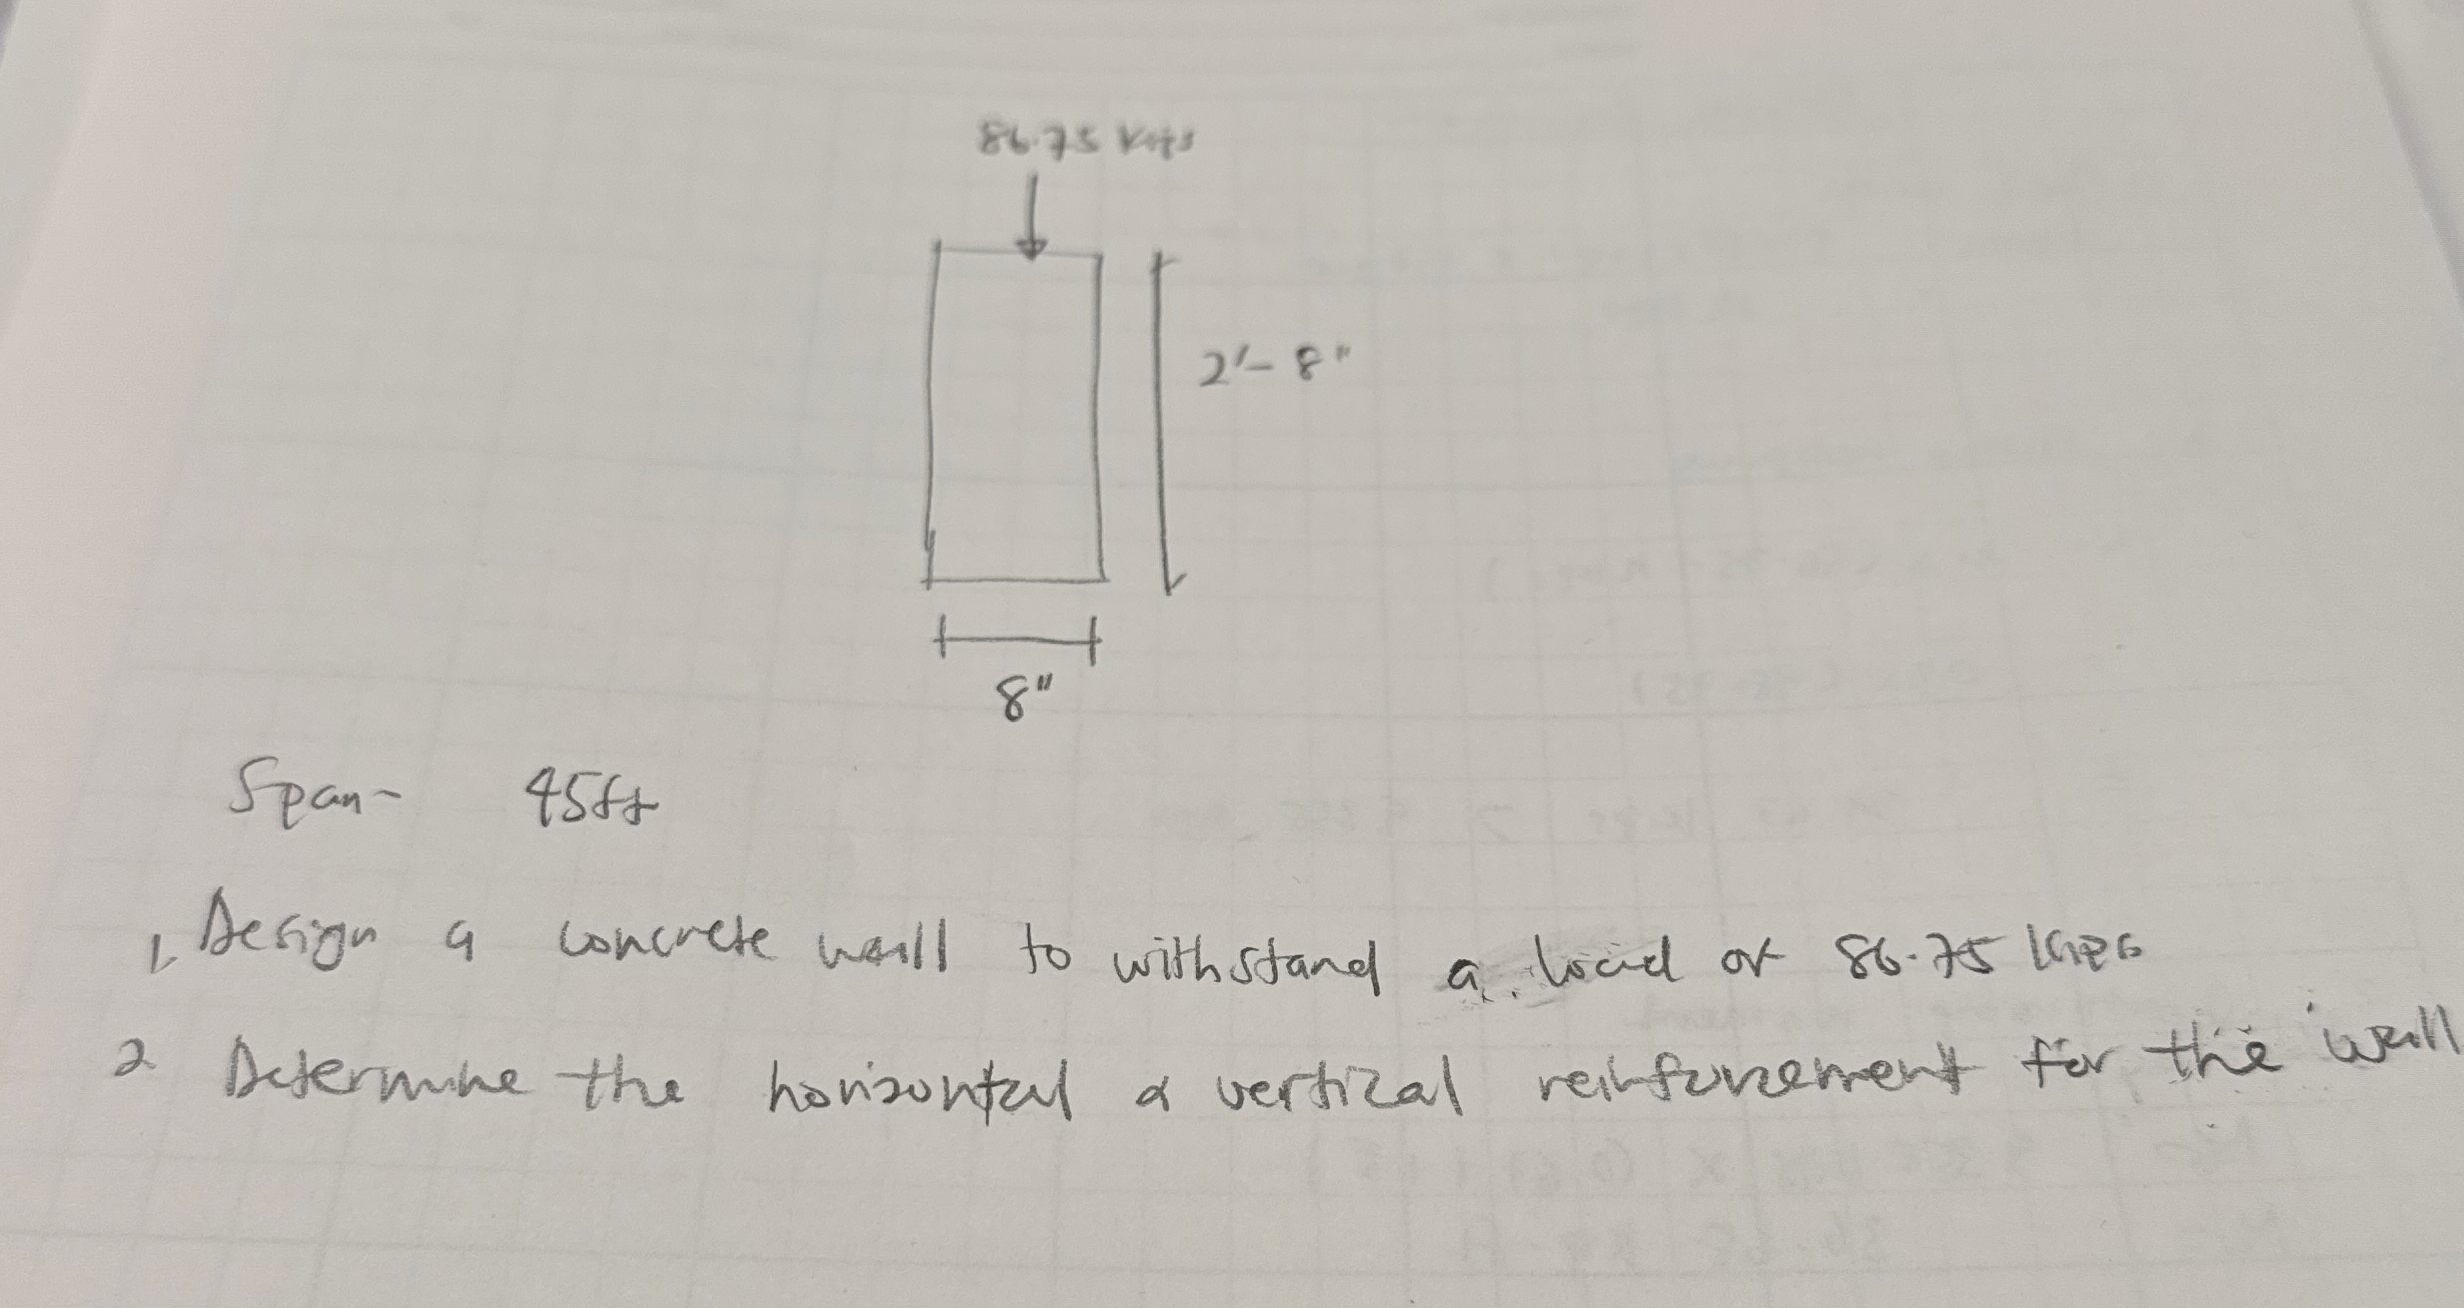 86.75 Kips
2'-8"
8"
Span- 45ft
1. Design a concrete wall to withstand a load of 86.75 Kips
2 Determine the horizontal & vertical reinforcement for the wall